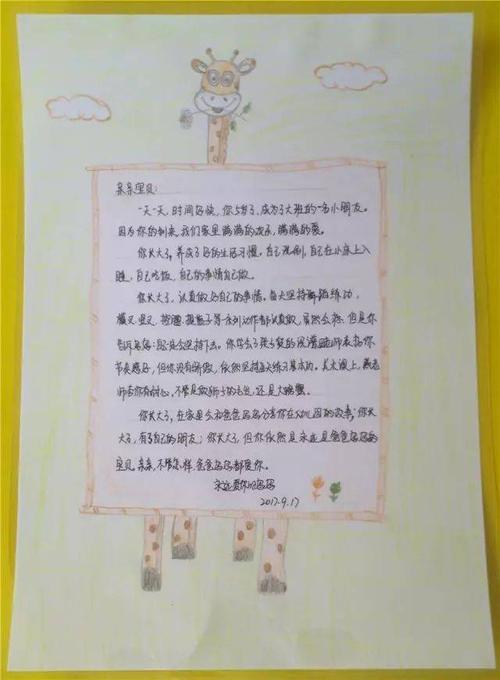 亲亲宝贝:
一天一天,时间好快,你5岁了,成为了大班的一名小朋友。
因为你的到来,我们家里满满的欢乐,满满的爱。
你长大了,养成了好的生活习惯。自己洗刷,自己在小床上入
睡,自己吃饭,自己的事情自己做。
你长大了,认真做好自己的事情。每天坚持舞蹈练功,
横叉、竖叉、等一系列动作都认真做,虽然会疼,但是你
告诉妈妈:您会坚持下去。你学会了老师表扬你
节奏感好,但你没有骄傲,依然坚持每天练习基本功。美术课上,老
师夸你有耐心,不管是做狮子的毛发,还是大螃蟹。
你长大了,在家里会和爸爸妈妈分享你在幼儿园的故事;你长
大了,有了自己的朋友;你长大了,但你依然是永远是爸爸妈妈的
宝贝。亲亲,不管怎样,爸爸妈妈都爱你。
永远爱你的妈妈
2017.9.17